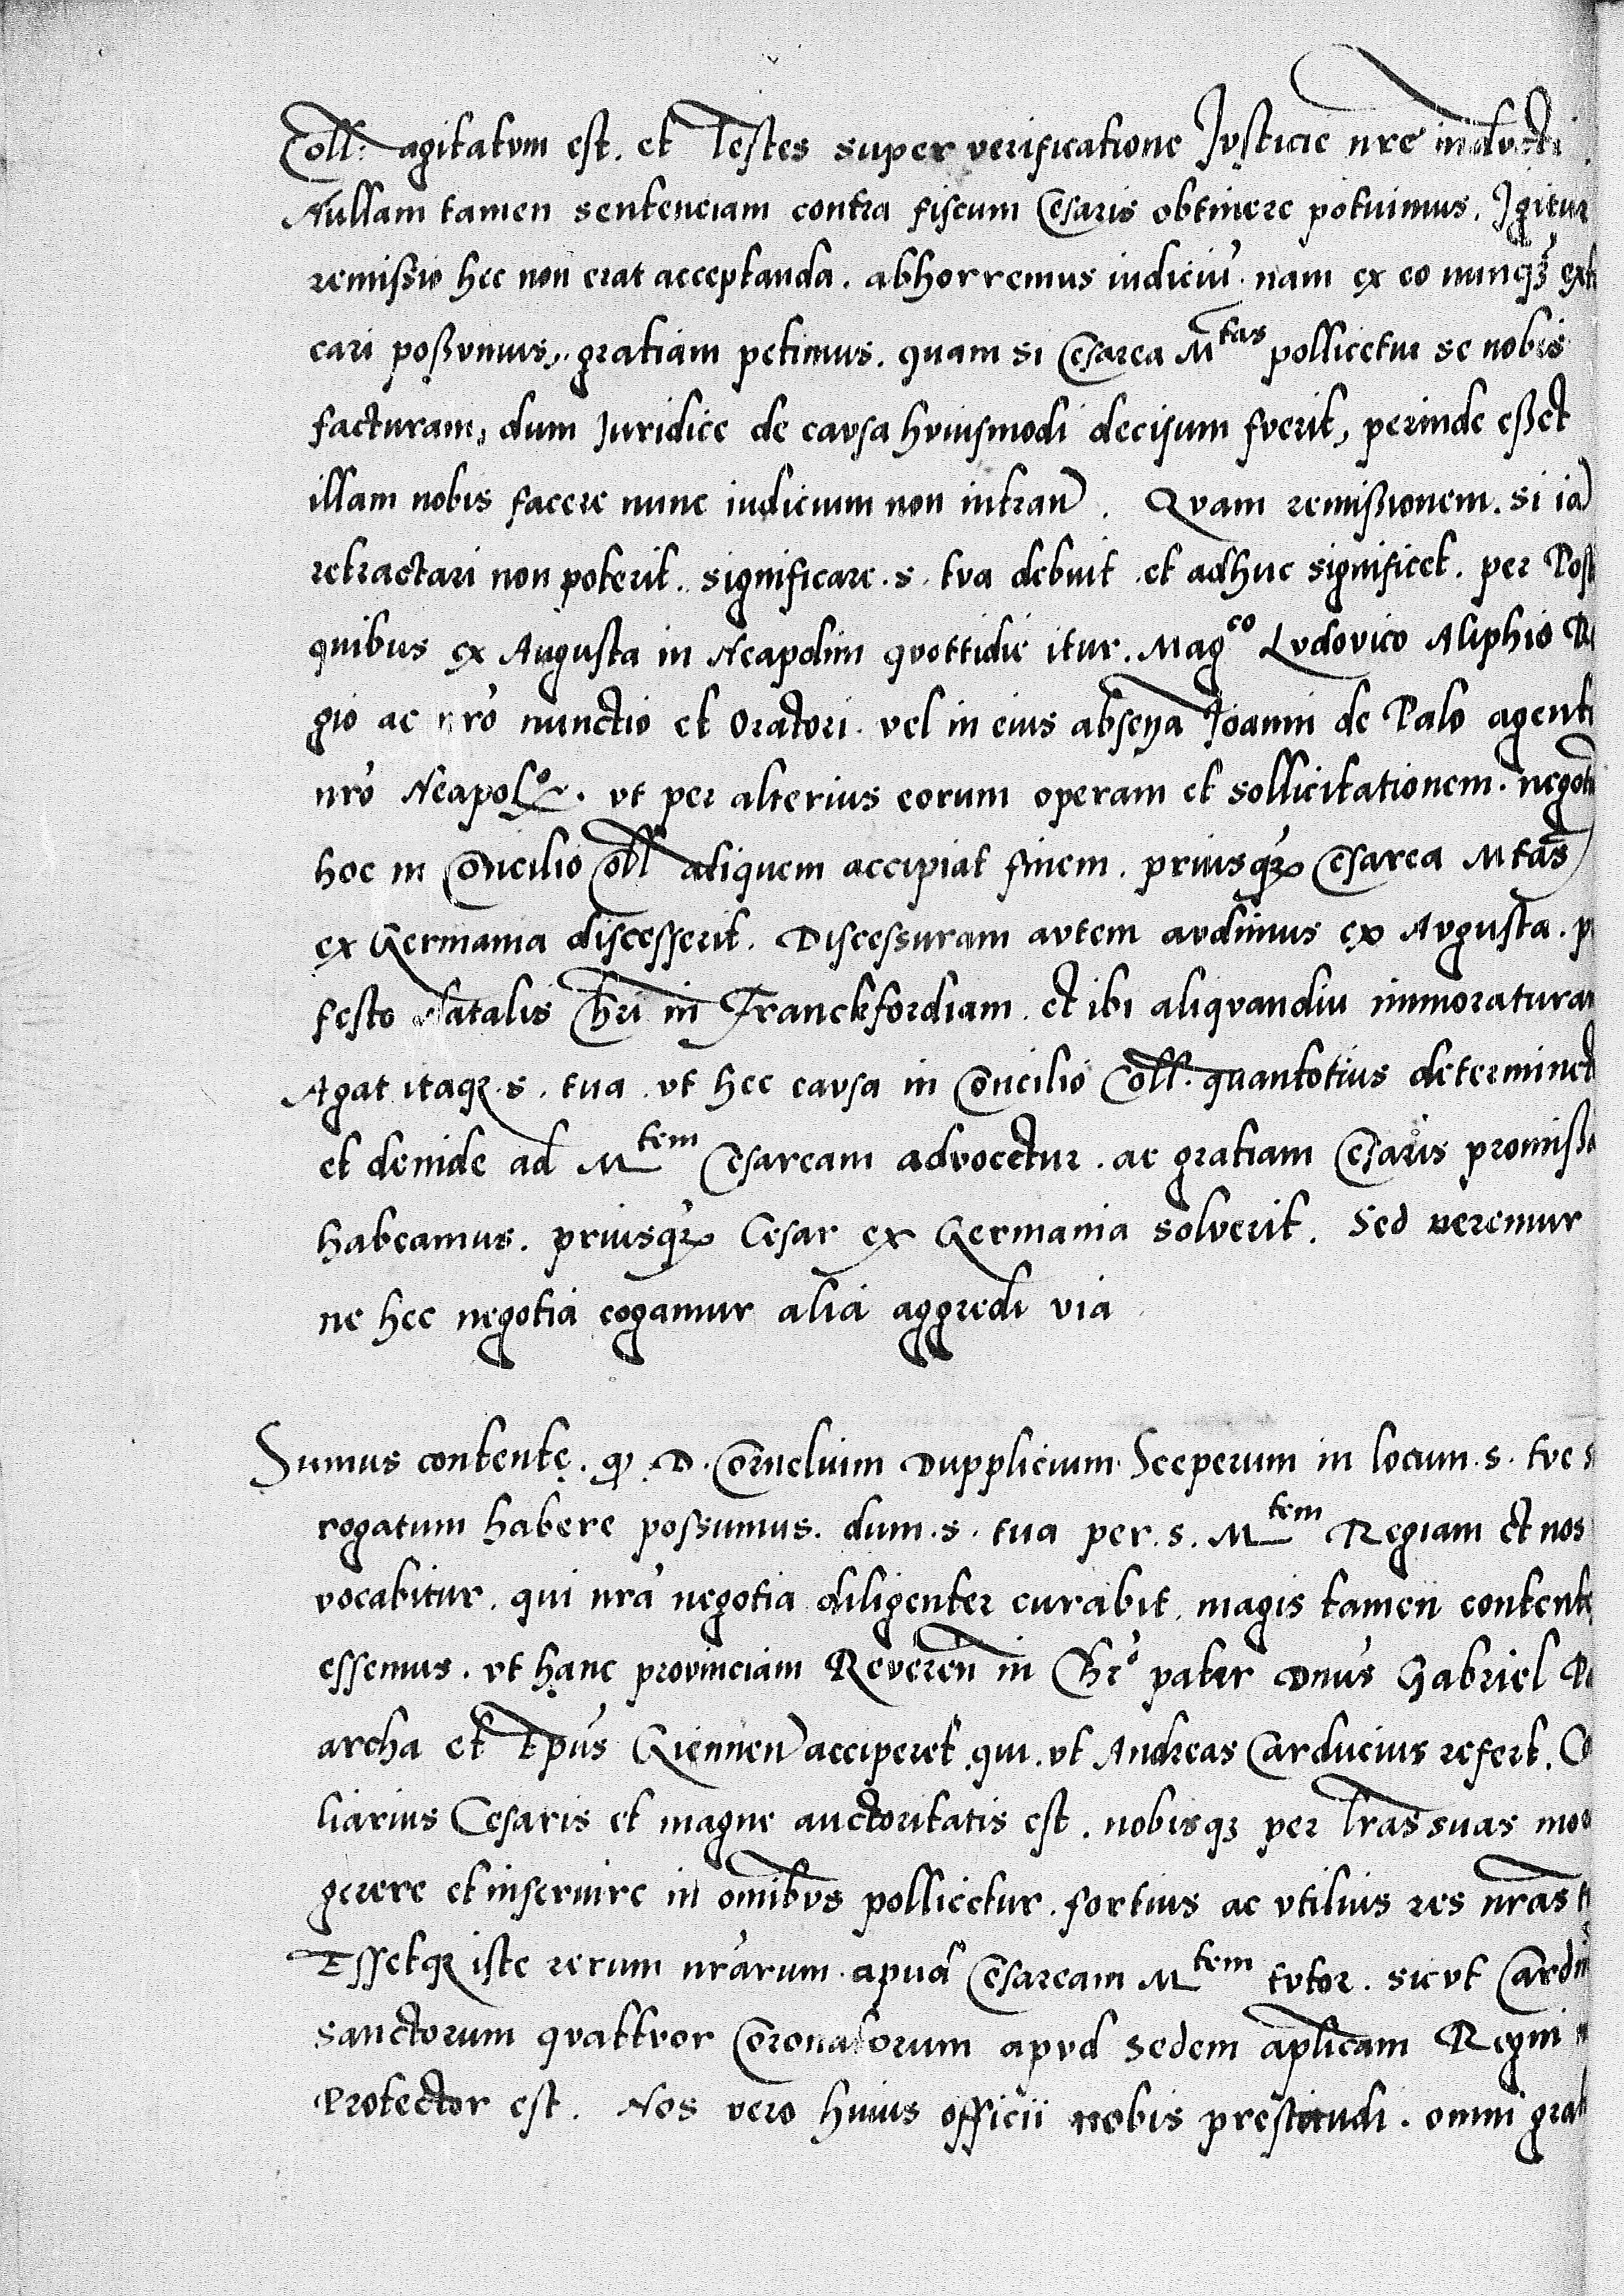 Coll: agitatum est. et Testes super verificatione Justicie nre inducti
Nullam tamen sentenciam contra fiscum Cesaris obtinere potuimus. Igitur
remissio hec non erat acceptanda. abhorremus iudiciu. nam ex eo nunqz
cari possumus, gratiam petimus. quam si Cesarea Mtas pollicetur se nobis
facturam, dum Juridice de causa huiusmodi decisum fuerit, perinde esset
illam nobis facere nunc iudicium non intran. Quam remissionem. si
retractari non poterit. significare. s. tua debuit. et adhuc significet. per
quibus ex Augusta in Neapolim quottidie itur. Magco Ludovico Aliphio
gio ac nro nunctio et Oratori. vel in eius absencia Joanni de Palo agenti
nro Neapol. ut per alterius eorum operam et sollicitationem.
hoc in Concilio Coll aliquem accipiat finem. priusqz Cesarea Mtas
ex Germania discesserit. Discessuram autem audimus ex Augusta.
festo Natalis Chri in Franckfordiam. et ibi aliquandiu
Agat itaqz. s. tua. ut hec causa in Concilio Coll. quantotius
et deinde ad Mtem Cesaream advocetur. ac gratiam Cesaris
habeamus. priusqz Cesar ex Germania solverit. Sed veremur
ne hec negotia cogamur alia aggredi via
Sumus contente. D. Cornelium Dupplicium Sceperum in locum. s. tue
rogatum habere possumus. dum. s. tua per. s. Mtem Regiam et nos
vocabitur. qui nra negotia diligenter curabit. magis tamen
essemus. ut hanc provinciam Reveren in Chro pater Dnus Gabriel
archa et Epus Giennen acciperet. qui. ut Andreas Carducius refert.
liarius Cesaris et magne auctoritatis est. nobisqz per lras suas
gerere et inservire in omnibus pollicetur. fortius ac utilius res nras
Essetqz iste rerum nrarum. apud Cesaream Mtem tutor. sicut
sanctorum quattuor Coronatorum apud Sedem aplicam Regni
Protector est. Nos vero huius officii nobis prestitudi. omni